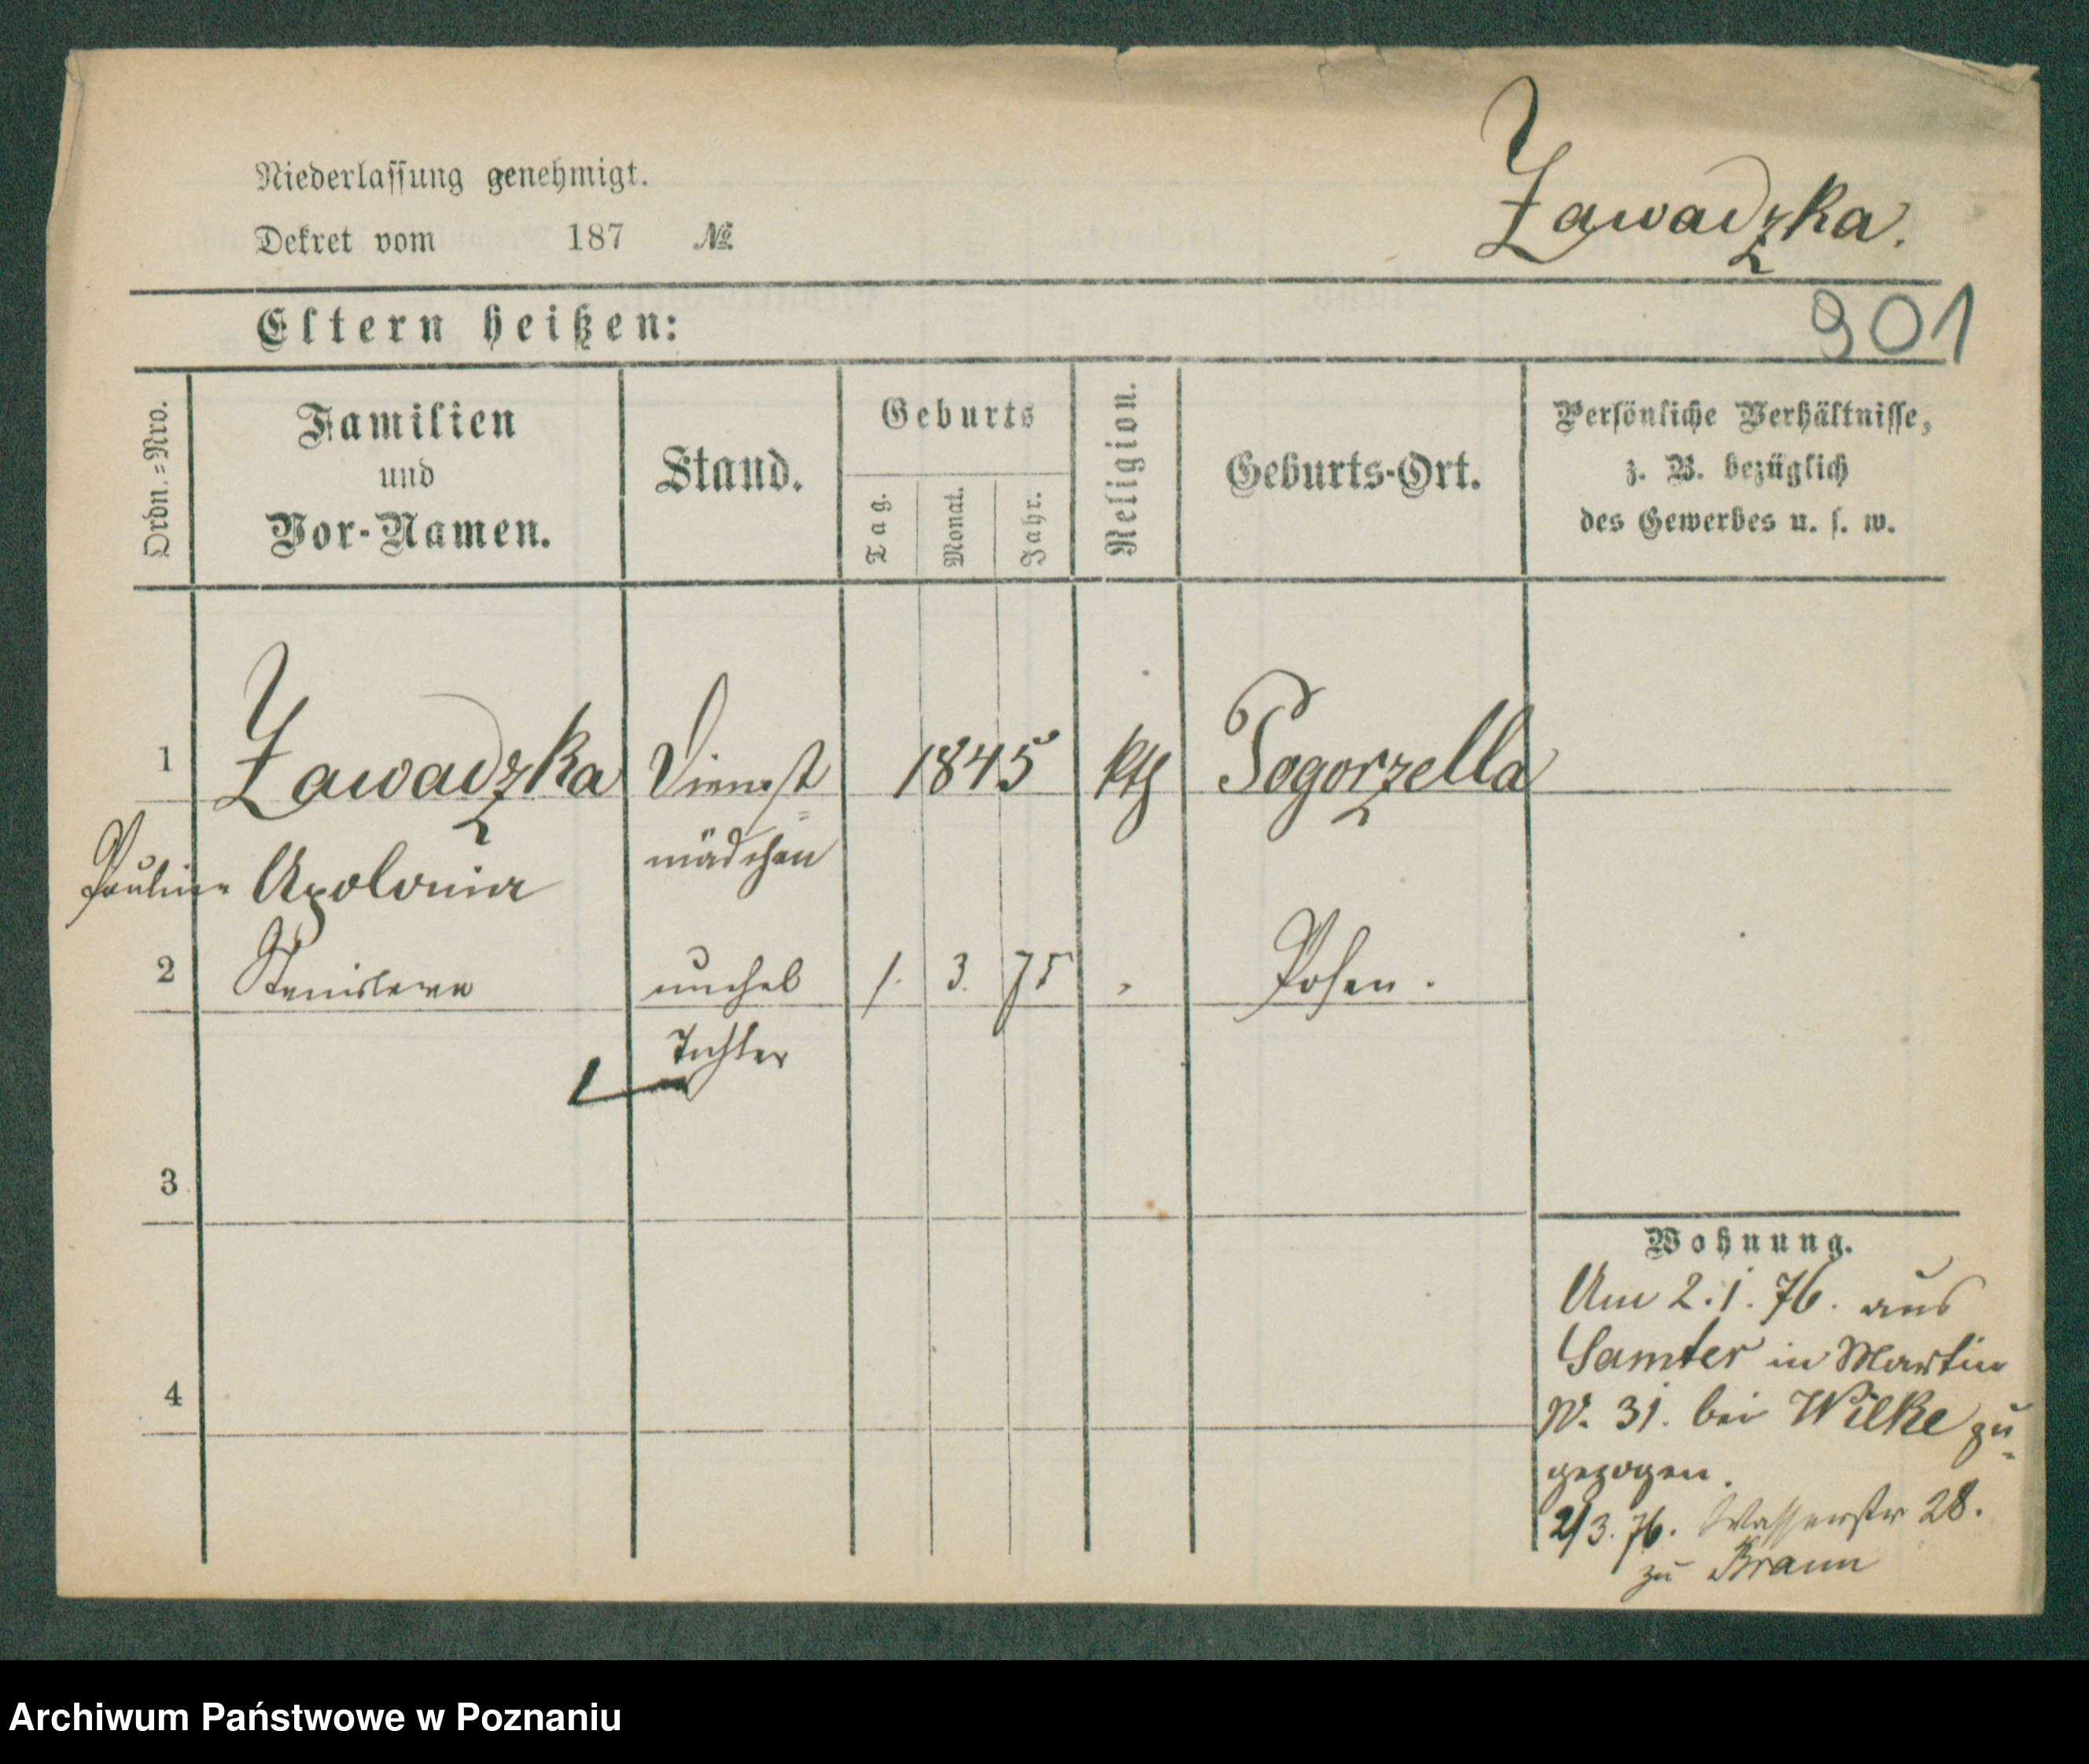 Niederlassung genehmigt.
Dekret vom 187 №
Zawadzka.
Eltern heißen:
901
Ordn.=Nro.
Familien
und
Vor-Namen.
Stand.
Geburts
Tag.
Monat.
Jahr.
Religion.
Geburts-Ort.
Persönliche Verhältnisse,
z. B. bezüglich
des Gewerbes u. s. w.
1 Zawadzka Dienst 1845 kth Pogorzella
=
mädchen
Pauline Apolonia
2 Stanislawa unehel 1. 3. 75 " Posen.
Tochter
3
4
Wohnung.
Am 2.1.76. aus
Samter in Martin
N. 31. bei Wilke zu=
gezogen.
2/3.76. Wasserstr 28.
zu Braun
Archiwum Państwowe w Poznaniu